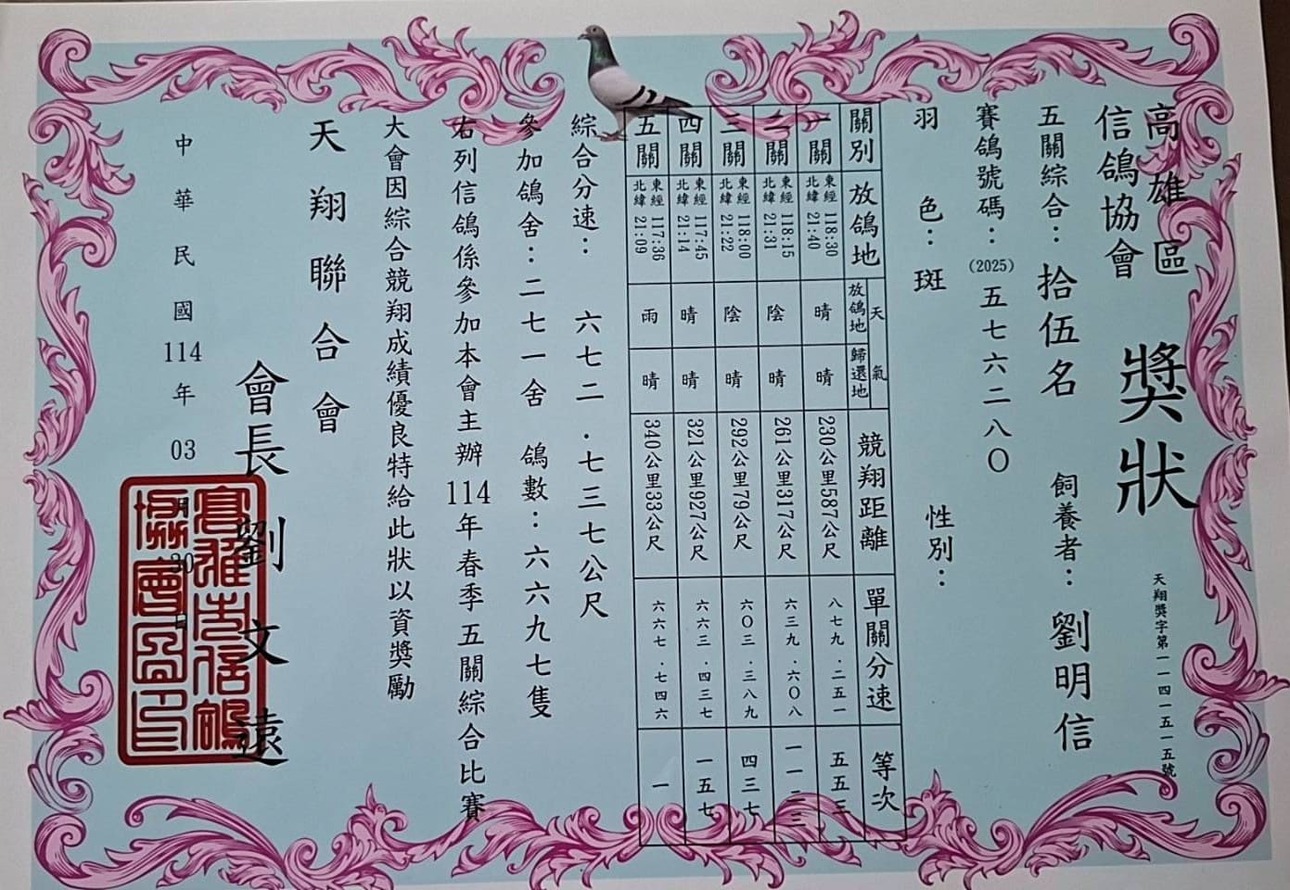 高雄區
信鴿協會
獎狀
天翔獎字第一一四一五一五號
五關綜合：拾伍名 飼養者：劉明信
賽鴿號碼：(2025)五七六二八〇
羽色：斑 性別：
關別 放鴿地 天氣 放鴿地 歸還地 競翔距離 單關分速 等次
一關 東經 118:30 北緯 21:40 晴 晴 230公里587公尺 八七九．二五一 五五三
二關 東經 118:15 北緯 21:31 陰 晴 261公里317公尺 六三九．六〇八 一一二三
三關 東經 118:00 北緯 21:22 陰 晴 292公里79公尺 六〇三．三八九 四三七
四關 東經 117:45 北緯 21:14 晴 晴 321公里927公尺 六六三．四三七 一五七
五關 東經 117:36 北緯 21:09 雨 晴 340公里33公尺 六六七．七四六 一
綜合分速：六七二．七三七公尺
參加鴿舍：二七一舍 鴿數：六六九七隻
右列信鴿係參加本會主辦114年春季五關綜合比賽
大會因綜合競翔成績優良特給此狀以資獎勵
天翔聯合會
會長 劉文遠
中華民國114年03月30日
高雄市信鴿
協會圖印